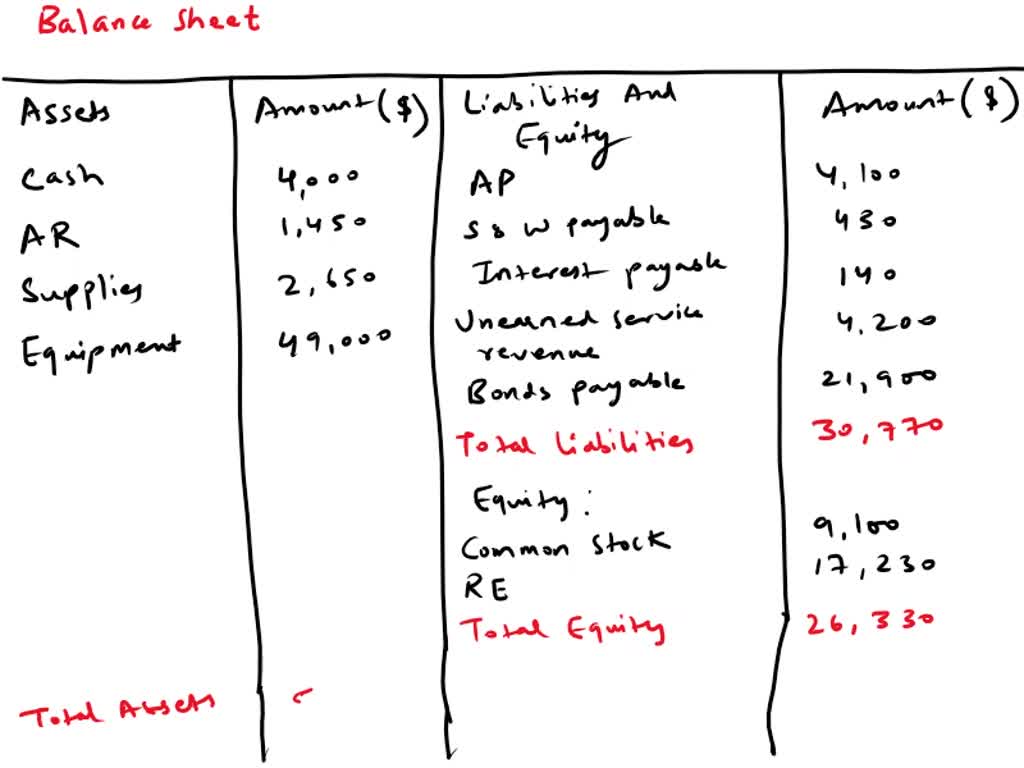 Balance Sheet
Assets Amount ($) Liabilities And Equity Amount ($)
Cash 4,000 AP 4,100
AR 1,450 S & W payable 430
Supplies 2,650 Interest payable 140
Equipment 49,000 Unearned service revenue 4,200
Bonds payable 21,900
Total Liabilities 30,770
Equity :
Common Stock 9,100
RE 17,230
Total Equity 26,330
Total Assets